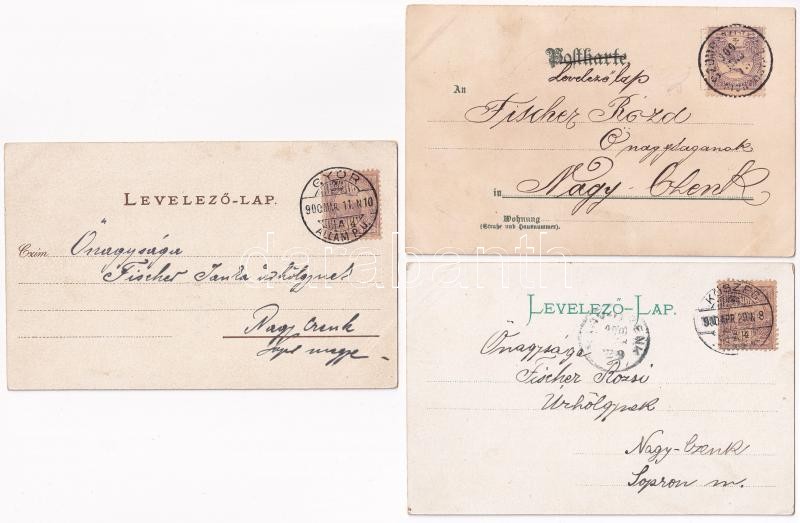 LEVELEZŐ-LAP.
GYŐR
900 MÁR. 11. N 10
ÁLLAM P.U.
Czim
Őnagysága
Fischer Janka úrhölgynek
Nagy Czenk
Sopron megye
Postkarte
Levelező lap
An
Fischer Rózá
Őnagyságának
in Nagy-Czenk
Wohnung
(Straße und Hausnummer).
LEVELEZŐ-LAP.
KŐSZEG
900 APR. 29. N. 8
Őnagysága
Fischer Rózsi
Úrhölgynek
Nagy-Czenk
Sopron m.
darabanth